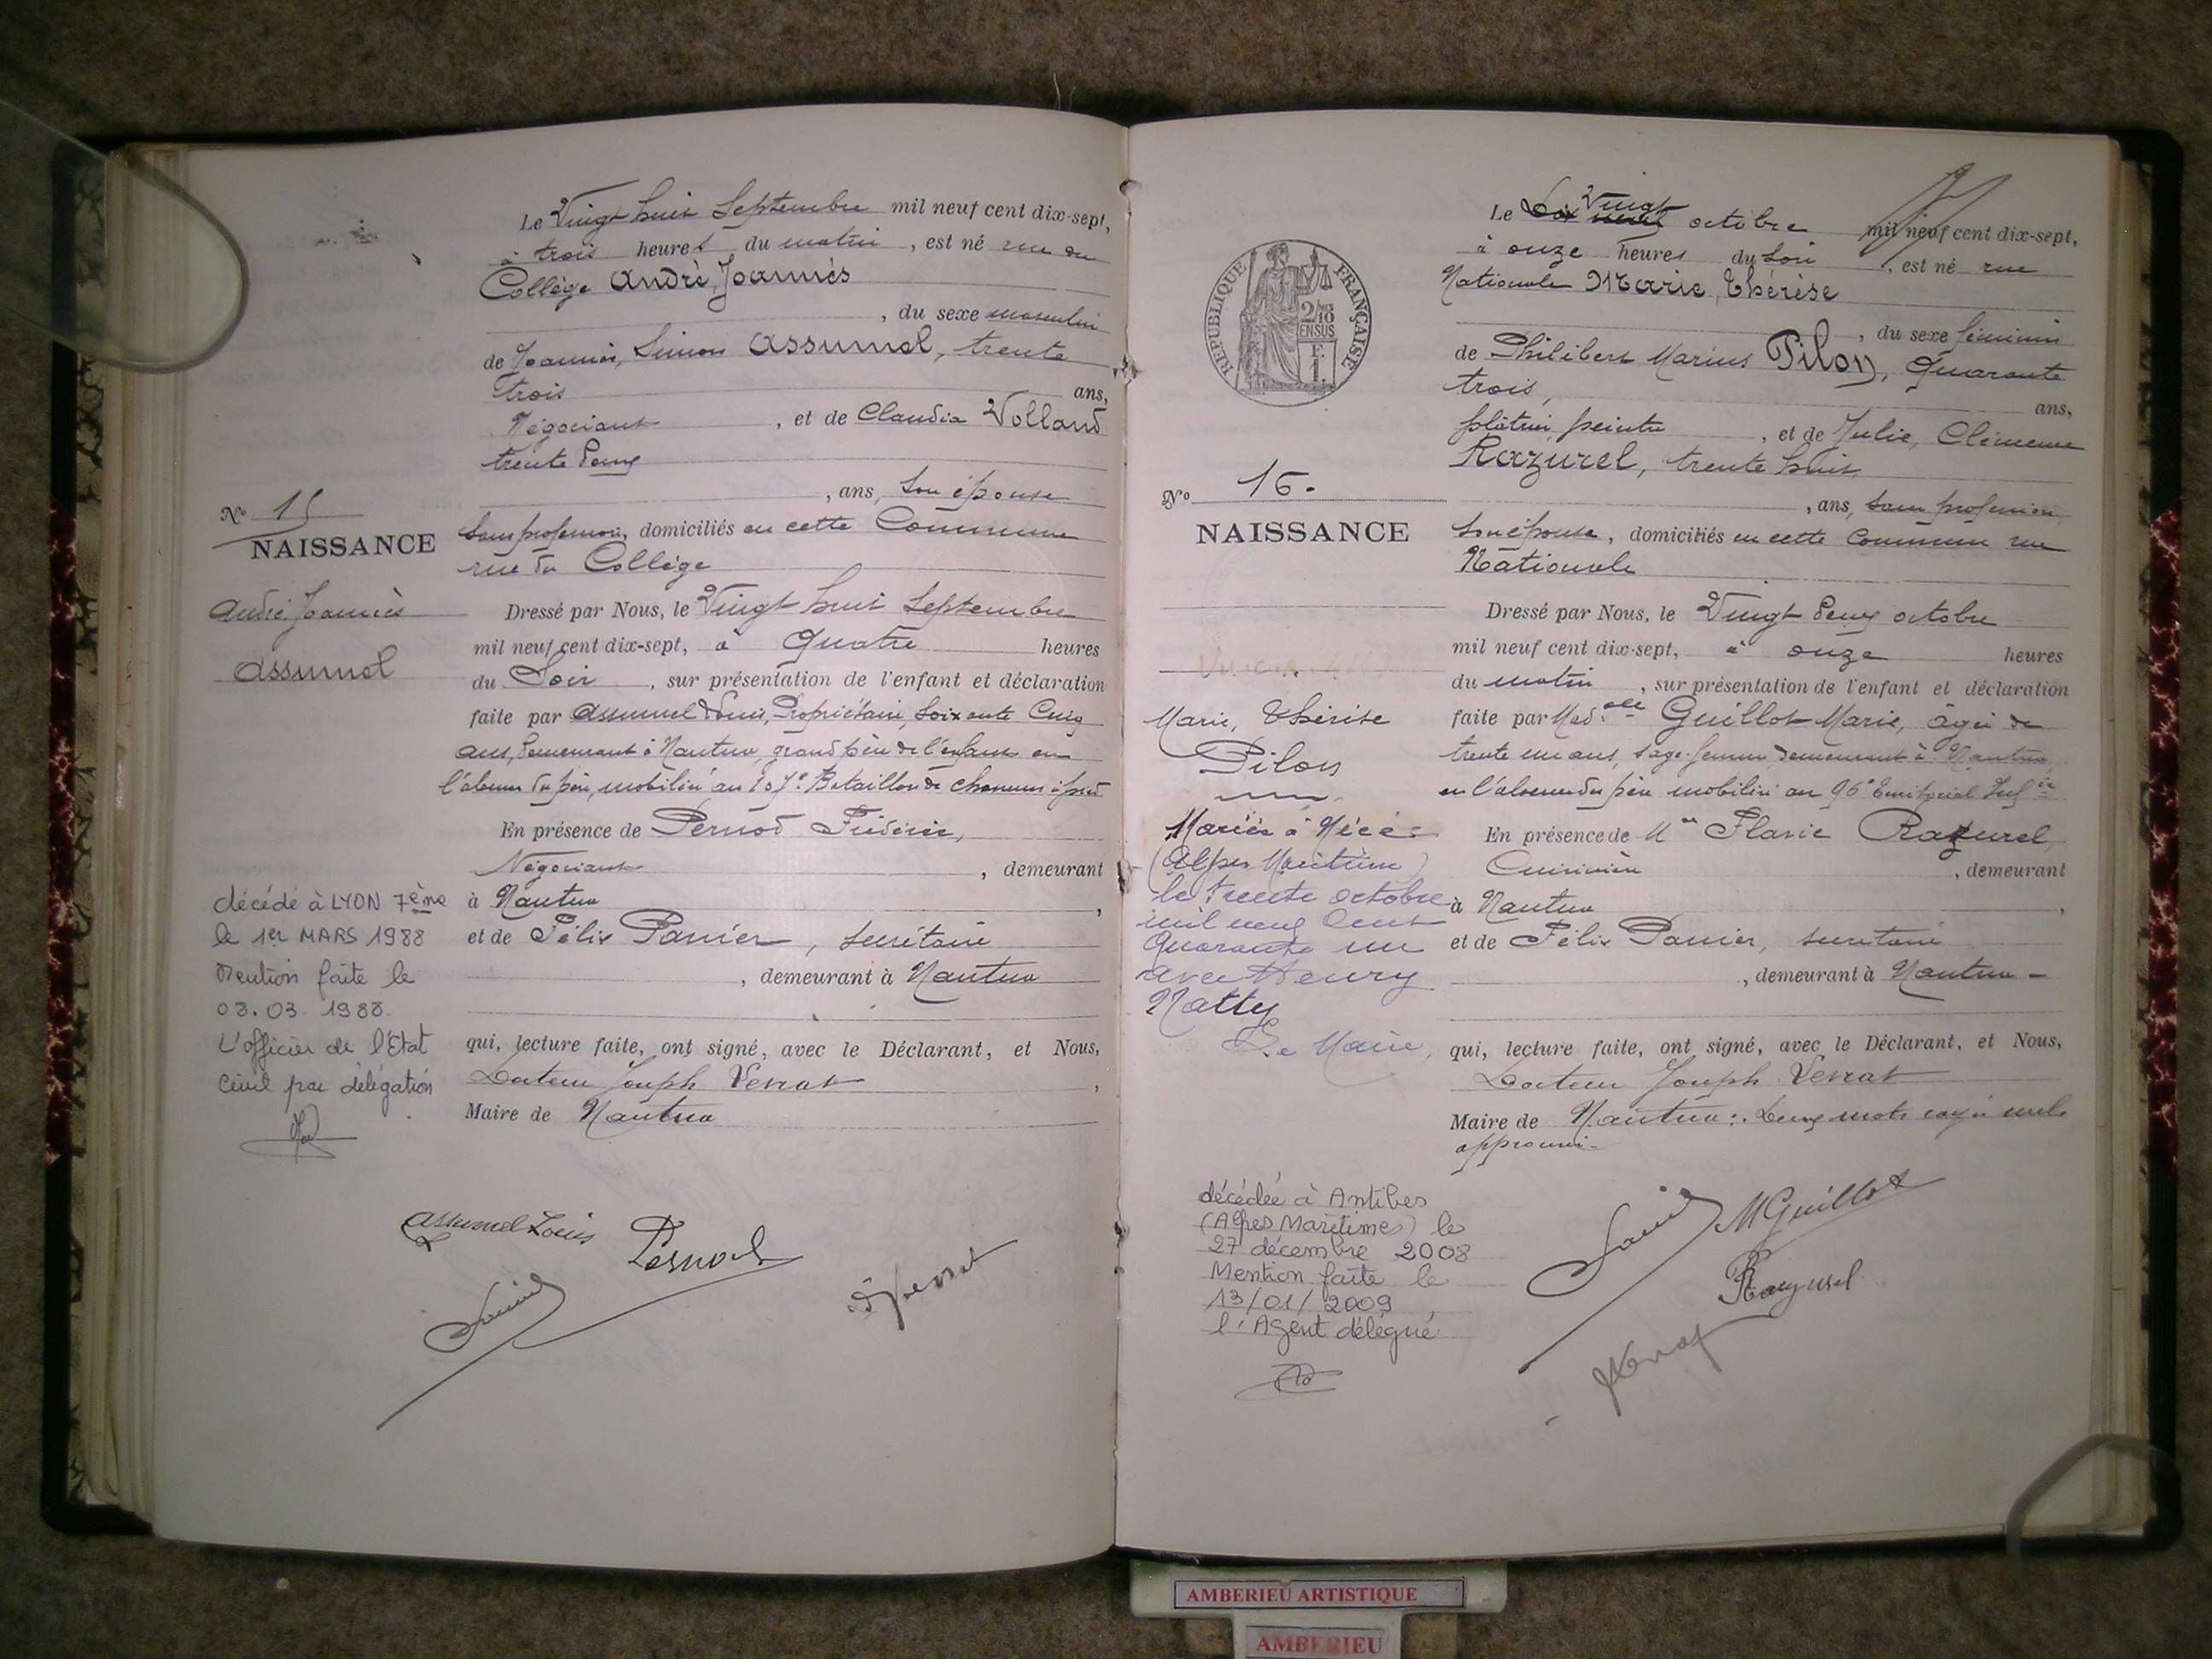 Le Vingt huit Septembre mil neuf cent dix-sept,
à trois heures du matin, est né rue du
Collège André, Joannès
, du sexe masculin
de Joannès, Simon Assumel, trente
trois ans,
Négociant, et de Claudia Volland
trente deux
, ans, son épouse
sans profession, domiciliés en cette Commune
rue du Collège
Nº 15
NAISSANCE
André, Joannès
Assumel
Dressé par Nous, le Vingt huit Septembre
mil neuf cent dix-sept, à Quatre heures
du Soir, sur présentation de l'enfant et déclaration
faite par Assumel Louis, Propriétaire, Soixante Cinq
ans, demeurant à Nantua, grand père de l'enfant en
l'absence du père, mobilisé au 107e Bataillon de Chasseurs à pied
En présence de Pernod Frédéric,
Négociant, demeurant
à Nantua,
et de Félix Panier, secrétaire
, demeurant à Nantua
qui, lecture faite, ont signé, avec le Déclarant, et Nous,
Docteur Joseph Verrat,
Maire de Nantua
décédé à LYON 7ème
le 1er MARS 1988
Mention faite le
08.03.1988.
L'officier de l'Etat
Civil par délégation
Assumel Louis Pernod
Le Dix neuf Vingt octobre mil neuf cent dix-sept,
à onze heures du Soir, est né rue
Nationale Marie, Thérèse
, du sexe féminin
de Philibert Marius Pilon, Quarante
trois, ans,
plâtrier peintre, et de Julie, Clémence
Razurel, trente huit
, ans, sans profession
son épouse, domiciliés en cette Commune rue
Nationale
REPUBLIQUE FRANÇAISE
2/10
EN SUS
F.
1.
Nº 16.
NAISSANCE
Marie, Thérèse
Pilon
Dressé par Nous, le Vingt deux octobre
mil neuf cent dix-sept, à onze heures
du matin, sur présentation de l'enfant et déclaration
faite par Mad.elle Guillot Marie, âgée de
trente un ans, sage-femme, demeurant à Nantua
en l'absence du père mobilisé au 96e Territorial Infie
En présence de Mme Flavie Razurel
Cuisinière, demeurant
à Nantua,
et de Félix Panier, secrétaire
, demeurant à Nantua -
qui, lecture faite, ont signé, avec le Déclarant, et Nous,
Docteur Joseph Verrat
Maire de Nantua: Deux mots rayés nuls
approuvé -
Mariée à Nice
(Alpes Maritimes)
le trente octobre
mil neuf cent
quarante un
avec Henry
Natty
Le Maire,
décédée à Antibes
(Alpes Maritimes) le
27 décembre 2008
Mention faite le
13/01/2009
l'Agent délégué
M Guillot
Razurel
AMBERIEU ARTISTIQUE
AMBERIEU